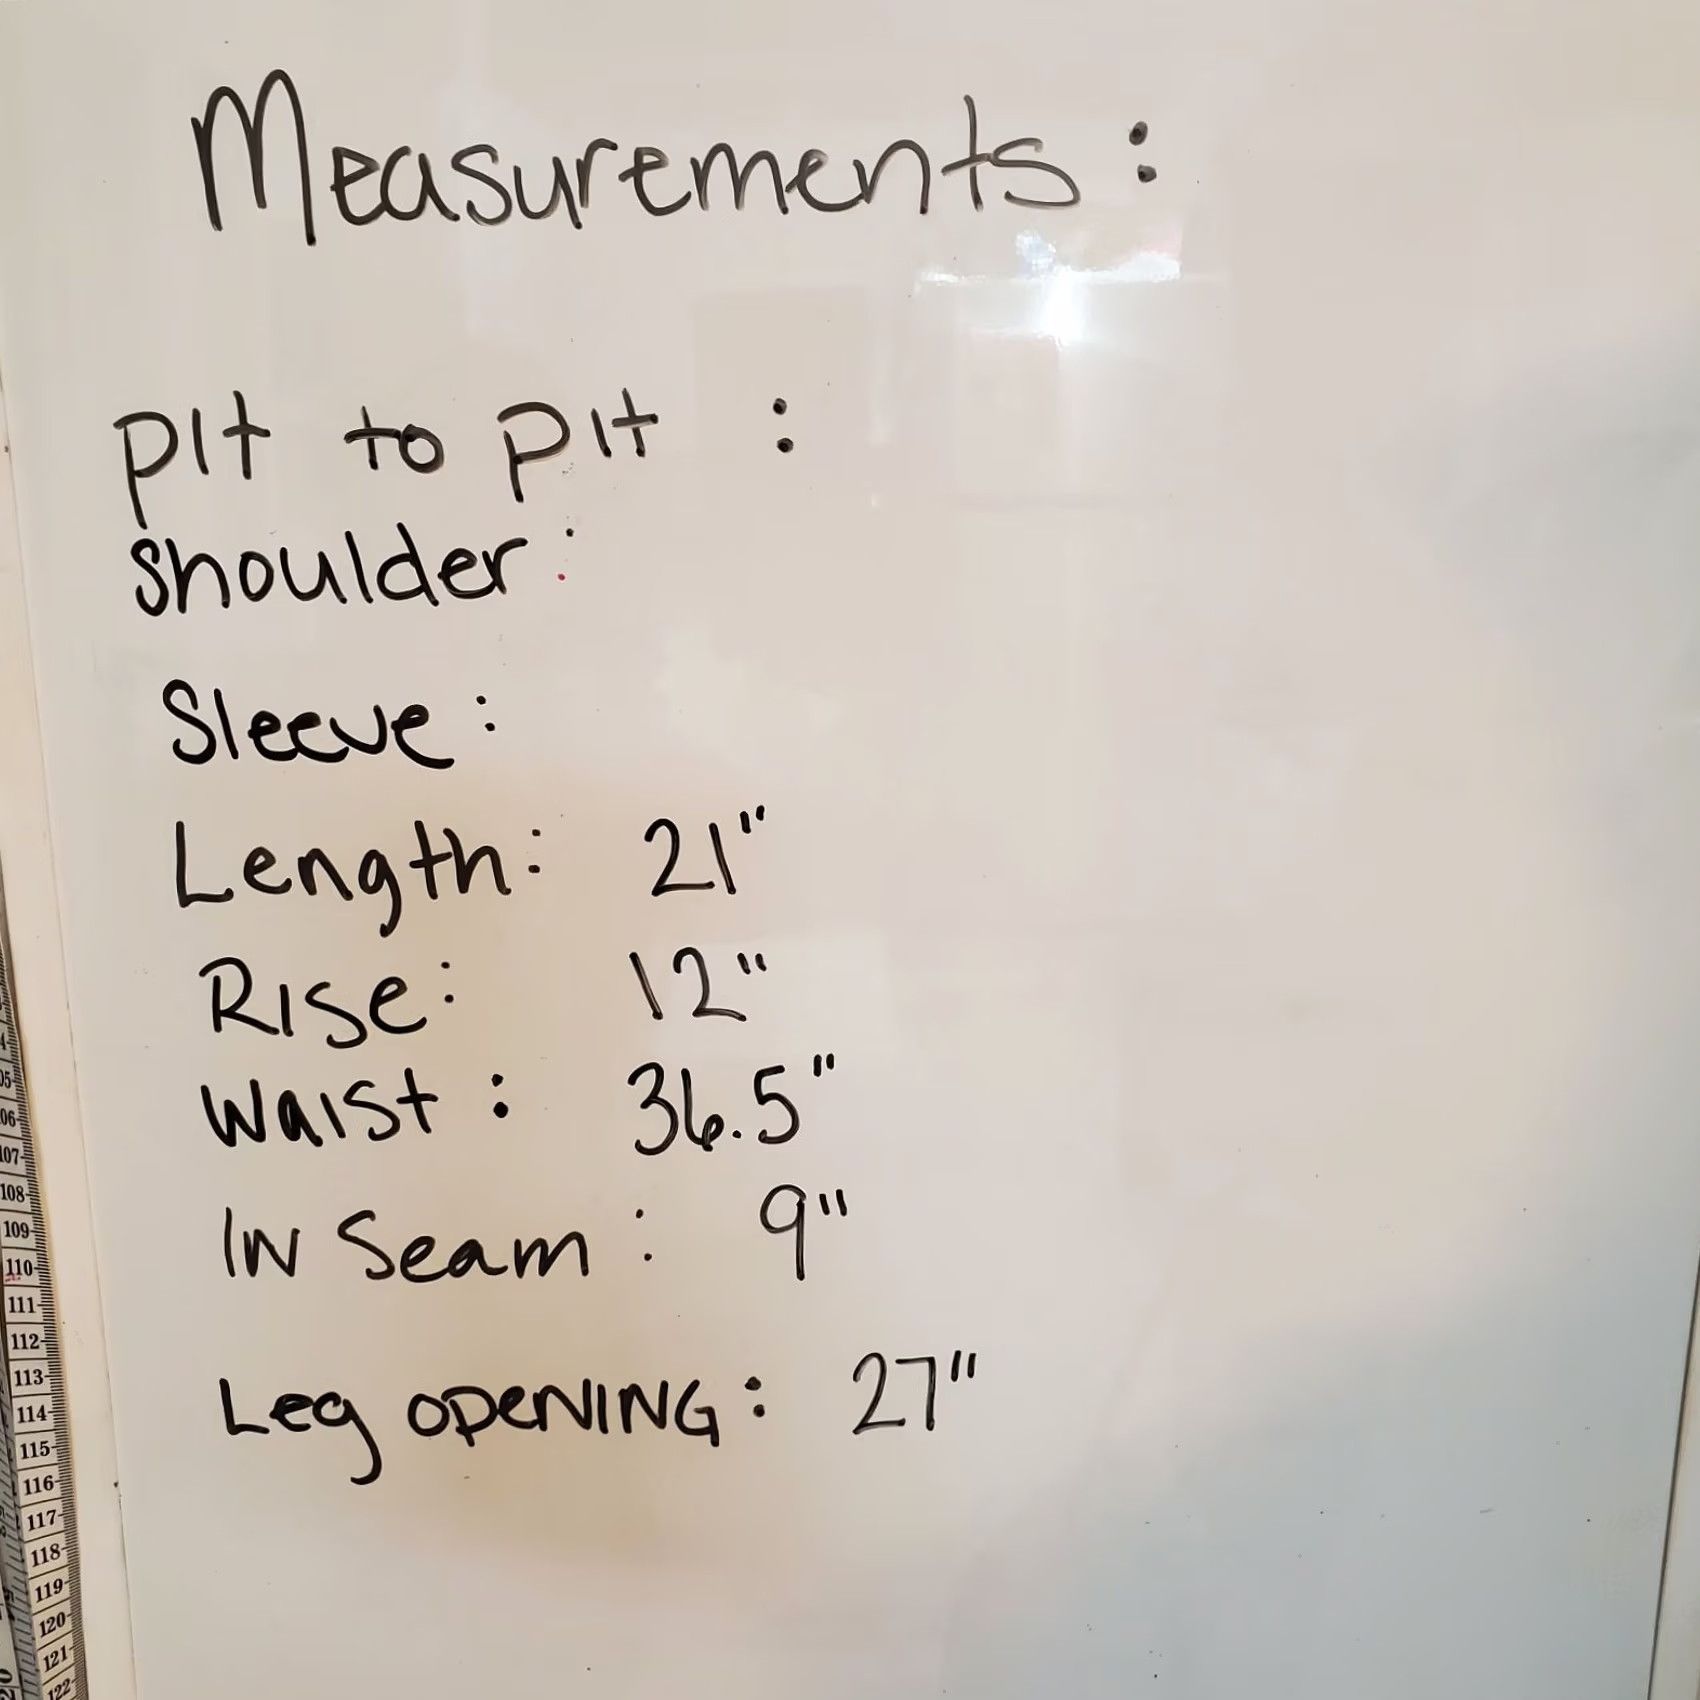 Measurements:
pit to pit :
shoulder:
Sleeve:
Length: 21"
Rise: 12"
Waist: 36.5"
IN Seam: 9"
Leg OPENING: 27"
105
106
107
108
109
110
111
112
113
114
115
116
117
118
119
120
121
122